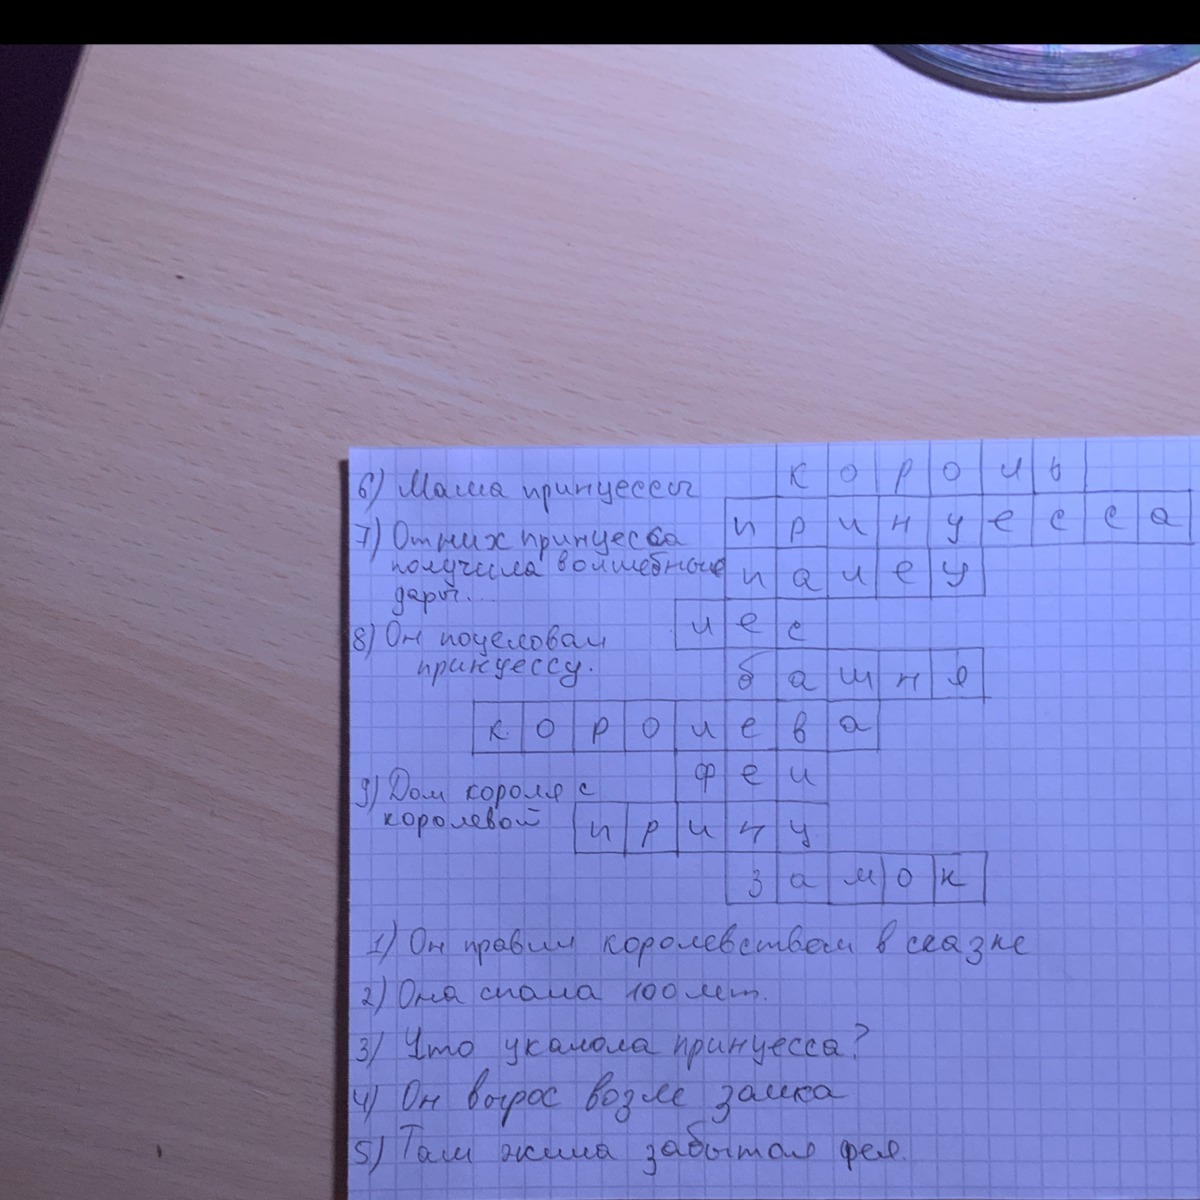 король
6) Мама принцессы
принцесса
7) От них принцесса
получила волшебные
дары...
палец
лес
8) Он поцеловал
принцессу.
башня
королева
феи
9) Дом короля с
королевой
принц
замок
1) Он правил королевством в сказке
2) Она спала 100 лет.
3) Что уколола принцесса?
4) Он вырос возле замка
5) Там жила забытая фея.